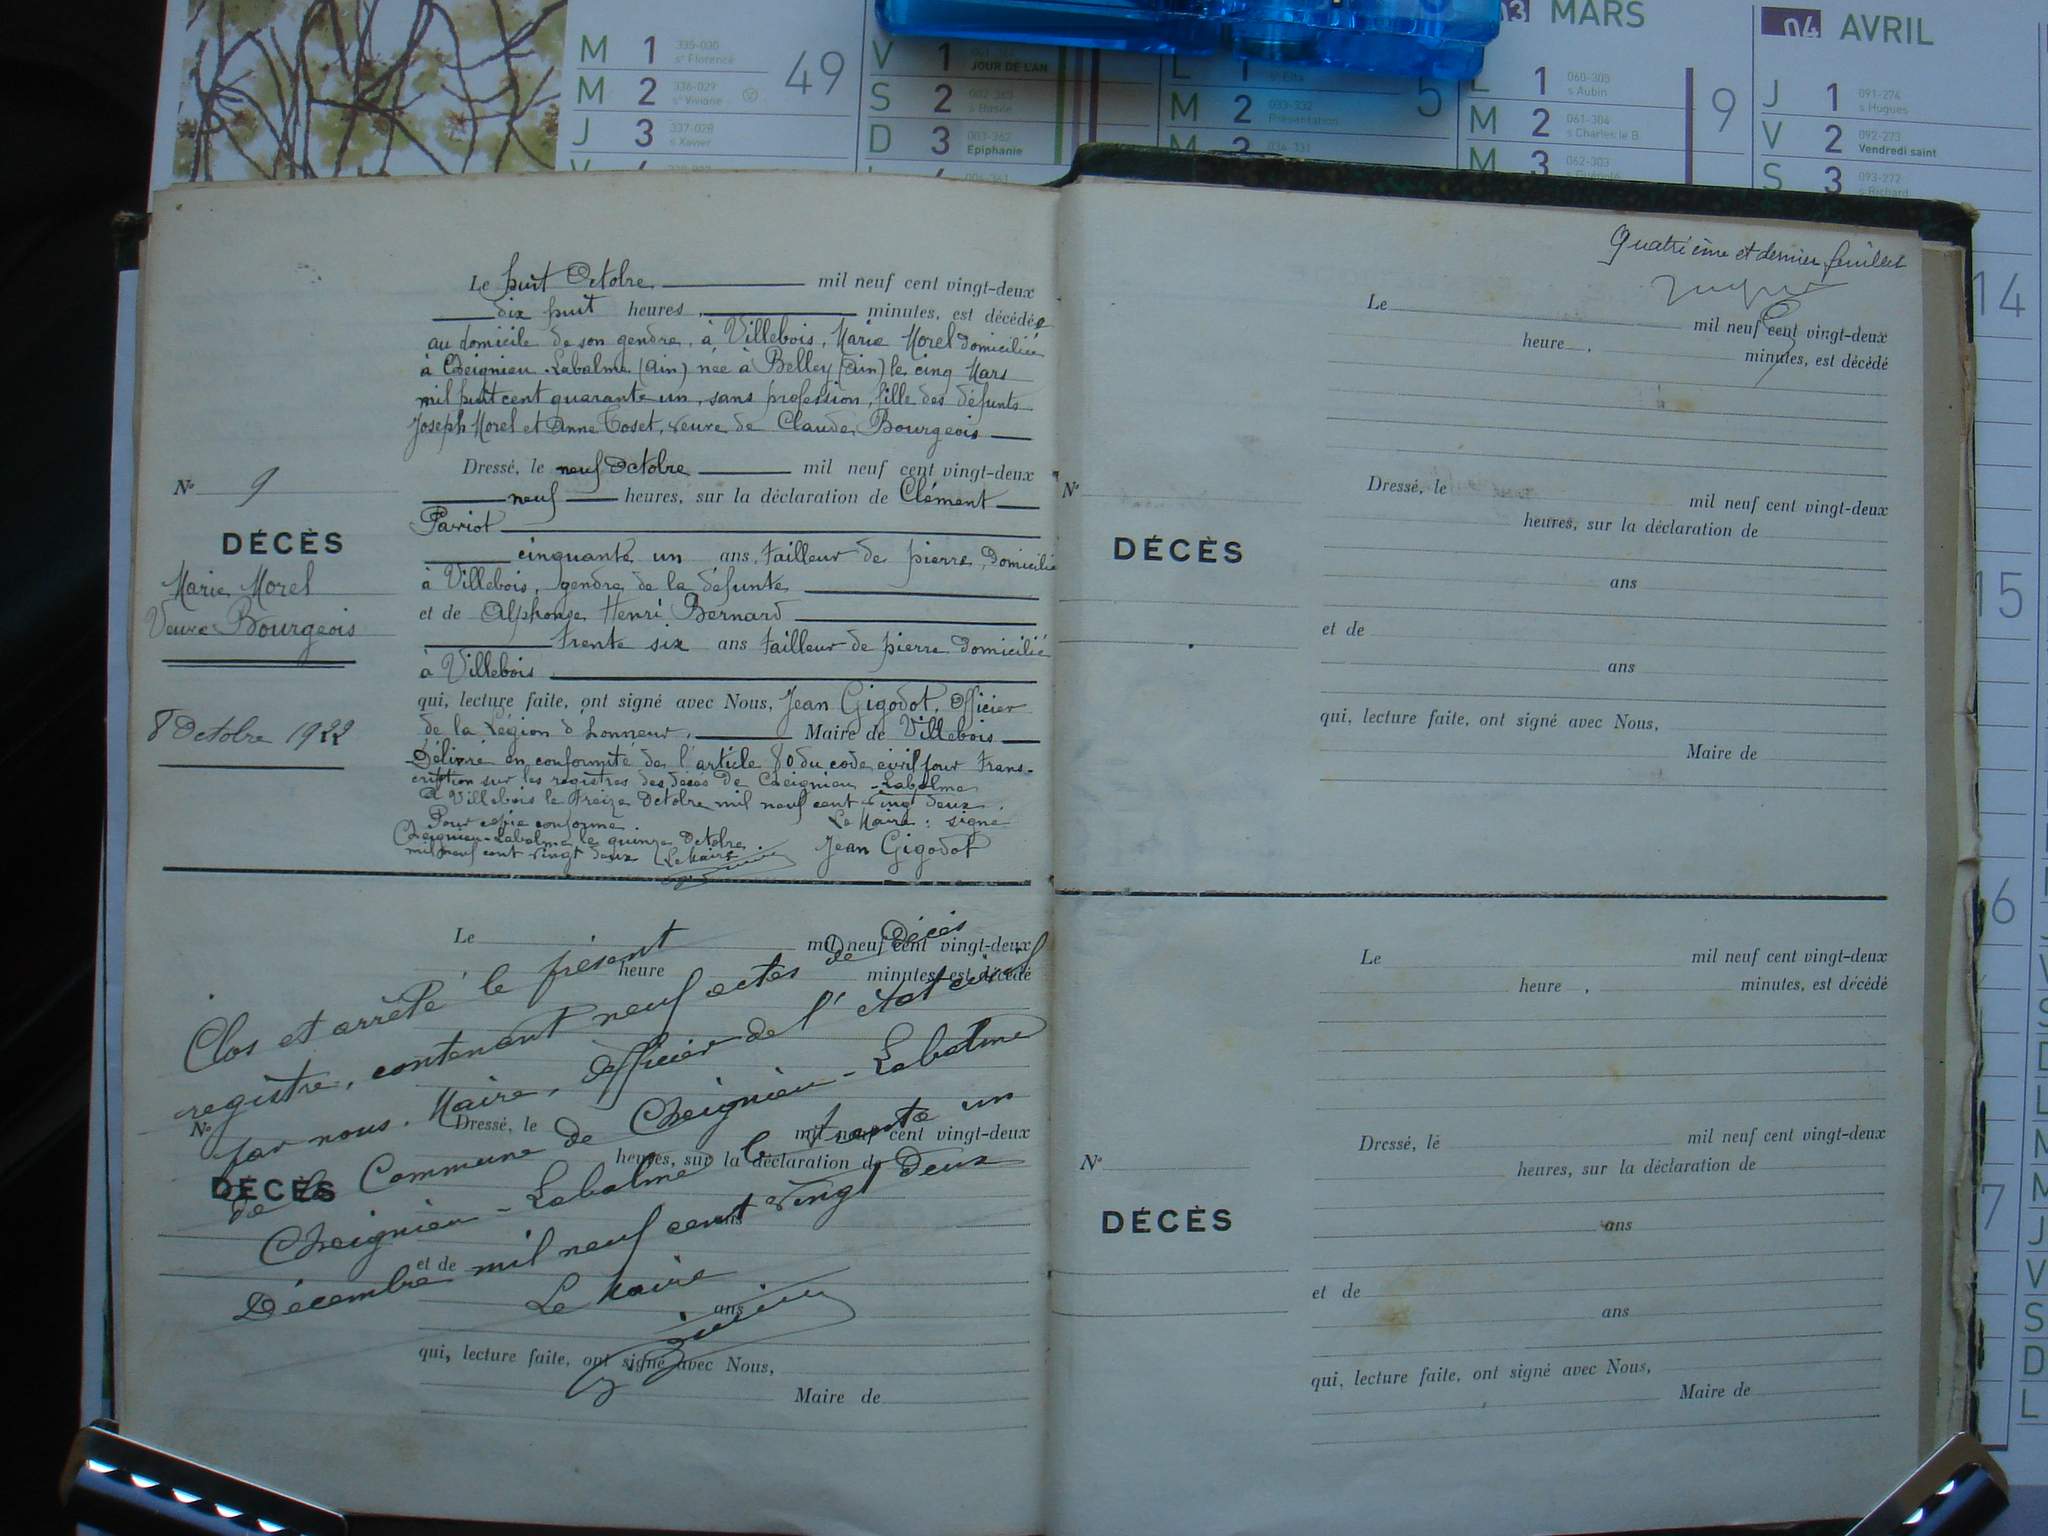 M 1 335-030 sᵉ Florence 49
M 2 336-029 sᵉ Viviane
J 3 337-028 s Xavier
V 1 JOUR DE L'AN
S 2 s Basile
D 3 003-362 Epiphanie
L 1 sᵉ Ella 5
M 2 033-332 Présentation
M 3 034-331
03 MARS
L 1 060-305 s Aubin 9
M 2 061-304 s Charles le B.
M 3 062-303 s Guénolé
04 AVRIL
J 1 091-274 s Hugues
V 2 092-273 Vendredi saint
S 3 093-272 s Richard
Le huit Octobre mil neuf cent vingt-deux
dix huit heures, minutes, est décédée
au domicile de son gendre, à Villebois, Marie Morel domiciliée
à Cheignieu-Labalme (Ain) née à Belley (Ain) le cinq Mars
mil huit cent quarante un, sans profession, fille des défunts
Joseph Morel et Anne Toset, veuve de Claude Bourgeois
Dressé, le neuf Octobre mil neuf cent vingt-deux
neuf heures, sur la déclaration de Clément
Pariot
cinquante un ans, tailleur de pierre, domicilié
à Villebois, gendre de la défunte
et de Alphonse Henri Bernard
trente six ans tailleur de pierre domicilié
à Villebois
qui, lecture faite, ont signé avec Nous, Jean Gigodot, Officier
de la Légion d'honneur, Maire de Villebois
Délivré en conformité de l'article 80 du code civil pour trans-
cription sur les registres des décès de Cheignieu-Labalme
A Villebois le treize Octobre mil neuf cent vingt deux.
Pour copie conforme Le Maire: signé
Cheignieu-Labalme le quinze Octobre
mil neuf cent vingt deux Le Maire Jean Gigodot
Nº 9
DÉCÈS
Marie Morel
Veuve Bourgeois
8 Octobre 1922
Le mil neuf cent vingt-deux
heure minutes, est décédé
Nº
DÉCÈS
Dressé, le mil neuf cent vingt-deux
heures, sur la déclaration de
ans
et de
ans
qui, lecture faite, ont signé avec Nous,
Maire de
Clos et arrêté le présent
registre, contenant neuf actes de décès
par nous, Maire, officier de l'état civil
de la Commune de Cheignieu-Labalme
Cheignieu-Labalme le trente un
Décembre mil neuf cent vingt deux
Le Maire
Quatrième et dernier feuillet
Le mil neuf cent vingt-deux
heure , minutes, est décédé
Nº
DÉCÈS
Dressé, le mil neuf cent vingt-deux
heures, sur la déclaration de
ans
et de
ans
qui, lecture faite, ont signé avec Nous,
Maire de
Le mil neuf cent vingt-deux
heure , minutes, est décédé
Nº
DÉCÈS
Dressé, le mil neuf cent vingt-deux
heures, sur la déclaration de
ans
et de
ans
qui, lecture faite, ont signé avec Nous,
Maire de
14
15
6
7
M
J
V
S
D
L